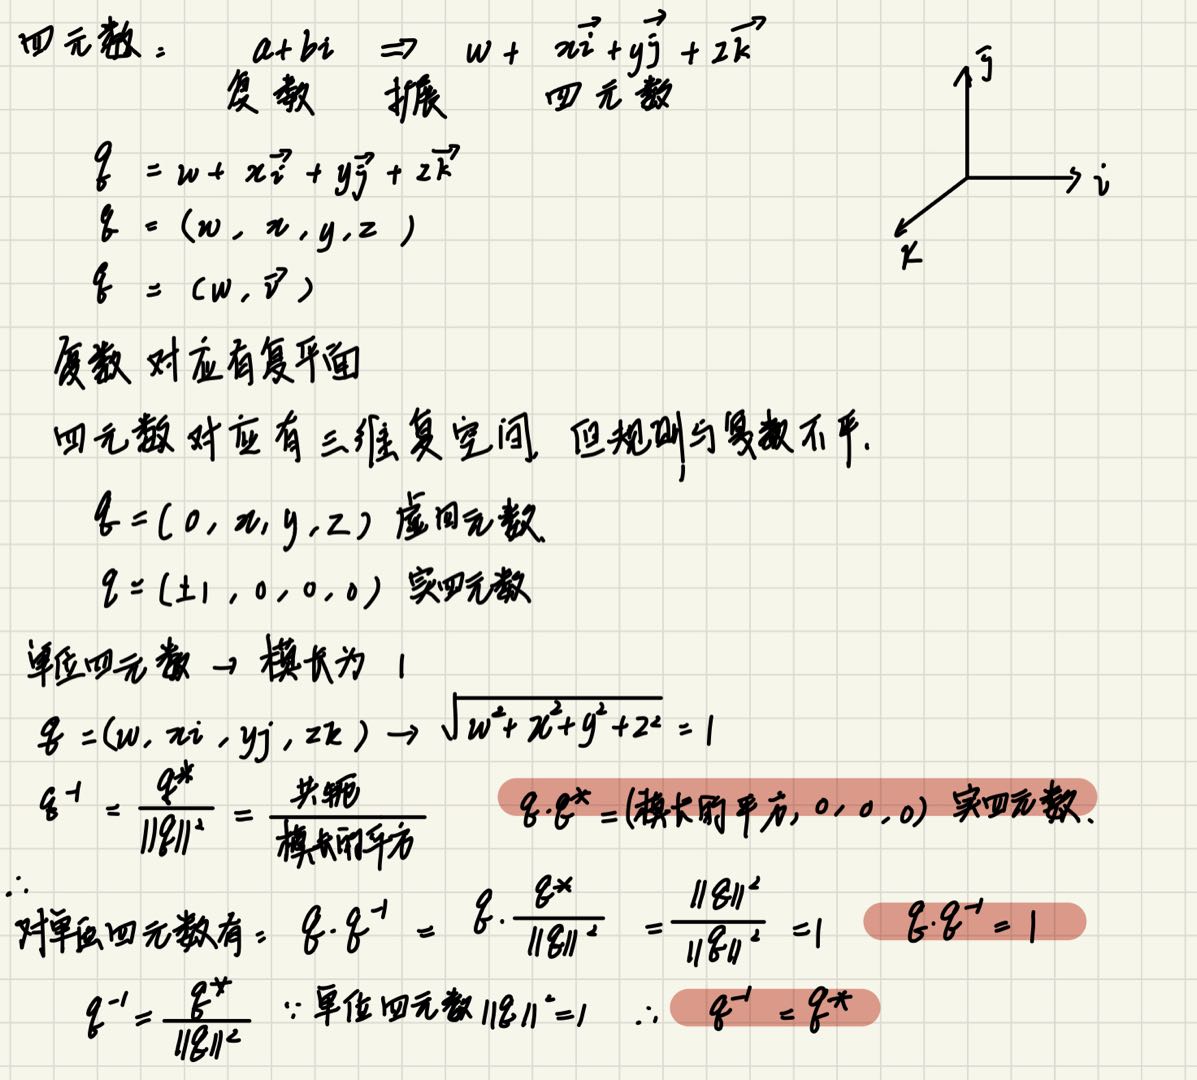 四元数: a+bi ⇒ w + x\vec{i} + y\vec{j} + z\vec{k}
复数 扩展 四元数
q = w + x\vec{i} + y\vec{j} + z\vec{k}
q = (w, x, y, z)
q = (w, \vec{v})
\vec{j}
i
k
复数对应有复平面
四元数对应有三维复空间,但规则与复数不平.
q = (0, x, y, z) 虚四元数.
q = (±1, 0, 0, 0) 实四元数
单位四元数 → 模长为 1
q = (w, xi, yj, zk) → \sqrt{w²+x²+y²+z²} = 1
q⁻¹ = q*/||q||² = 共轭/模长的平方 q·q* = (模长的平方, 0, 0, 0) 实四元数.
∴
对单位四元数有: q·q⁻¹ = q·q*/||q||² = ||q||²/||q||² = 1 q·q⁻¹ = 1
q⁻¹ = q*/||q||² ∵ 单位四元数 ||q||² = 1 ∴ q⁻¹ = q*